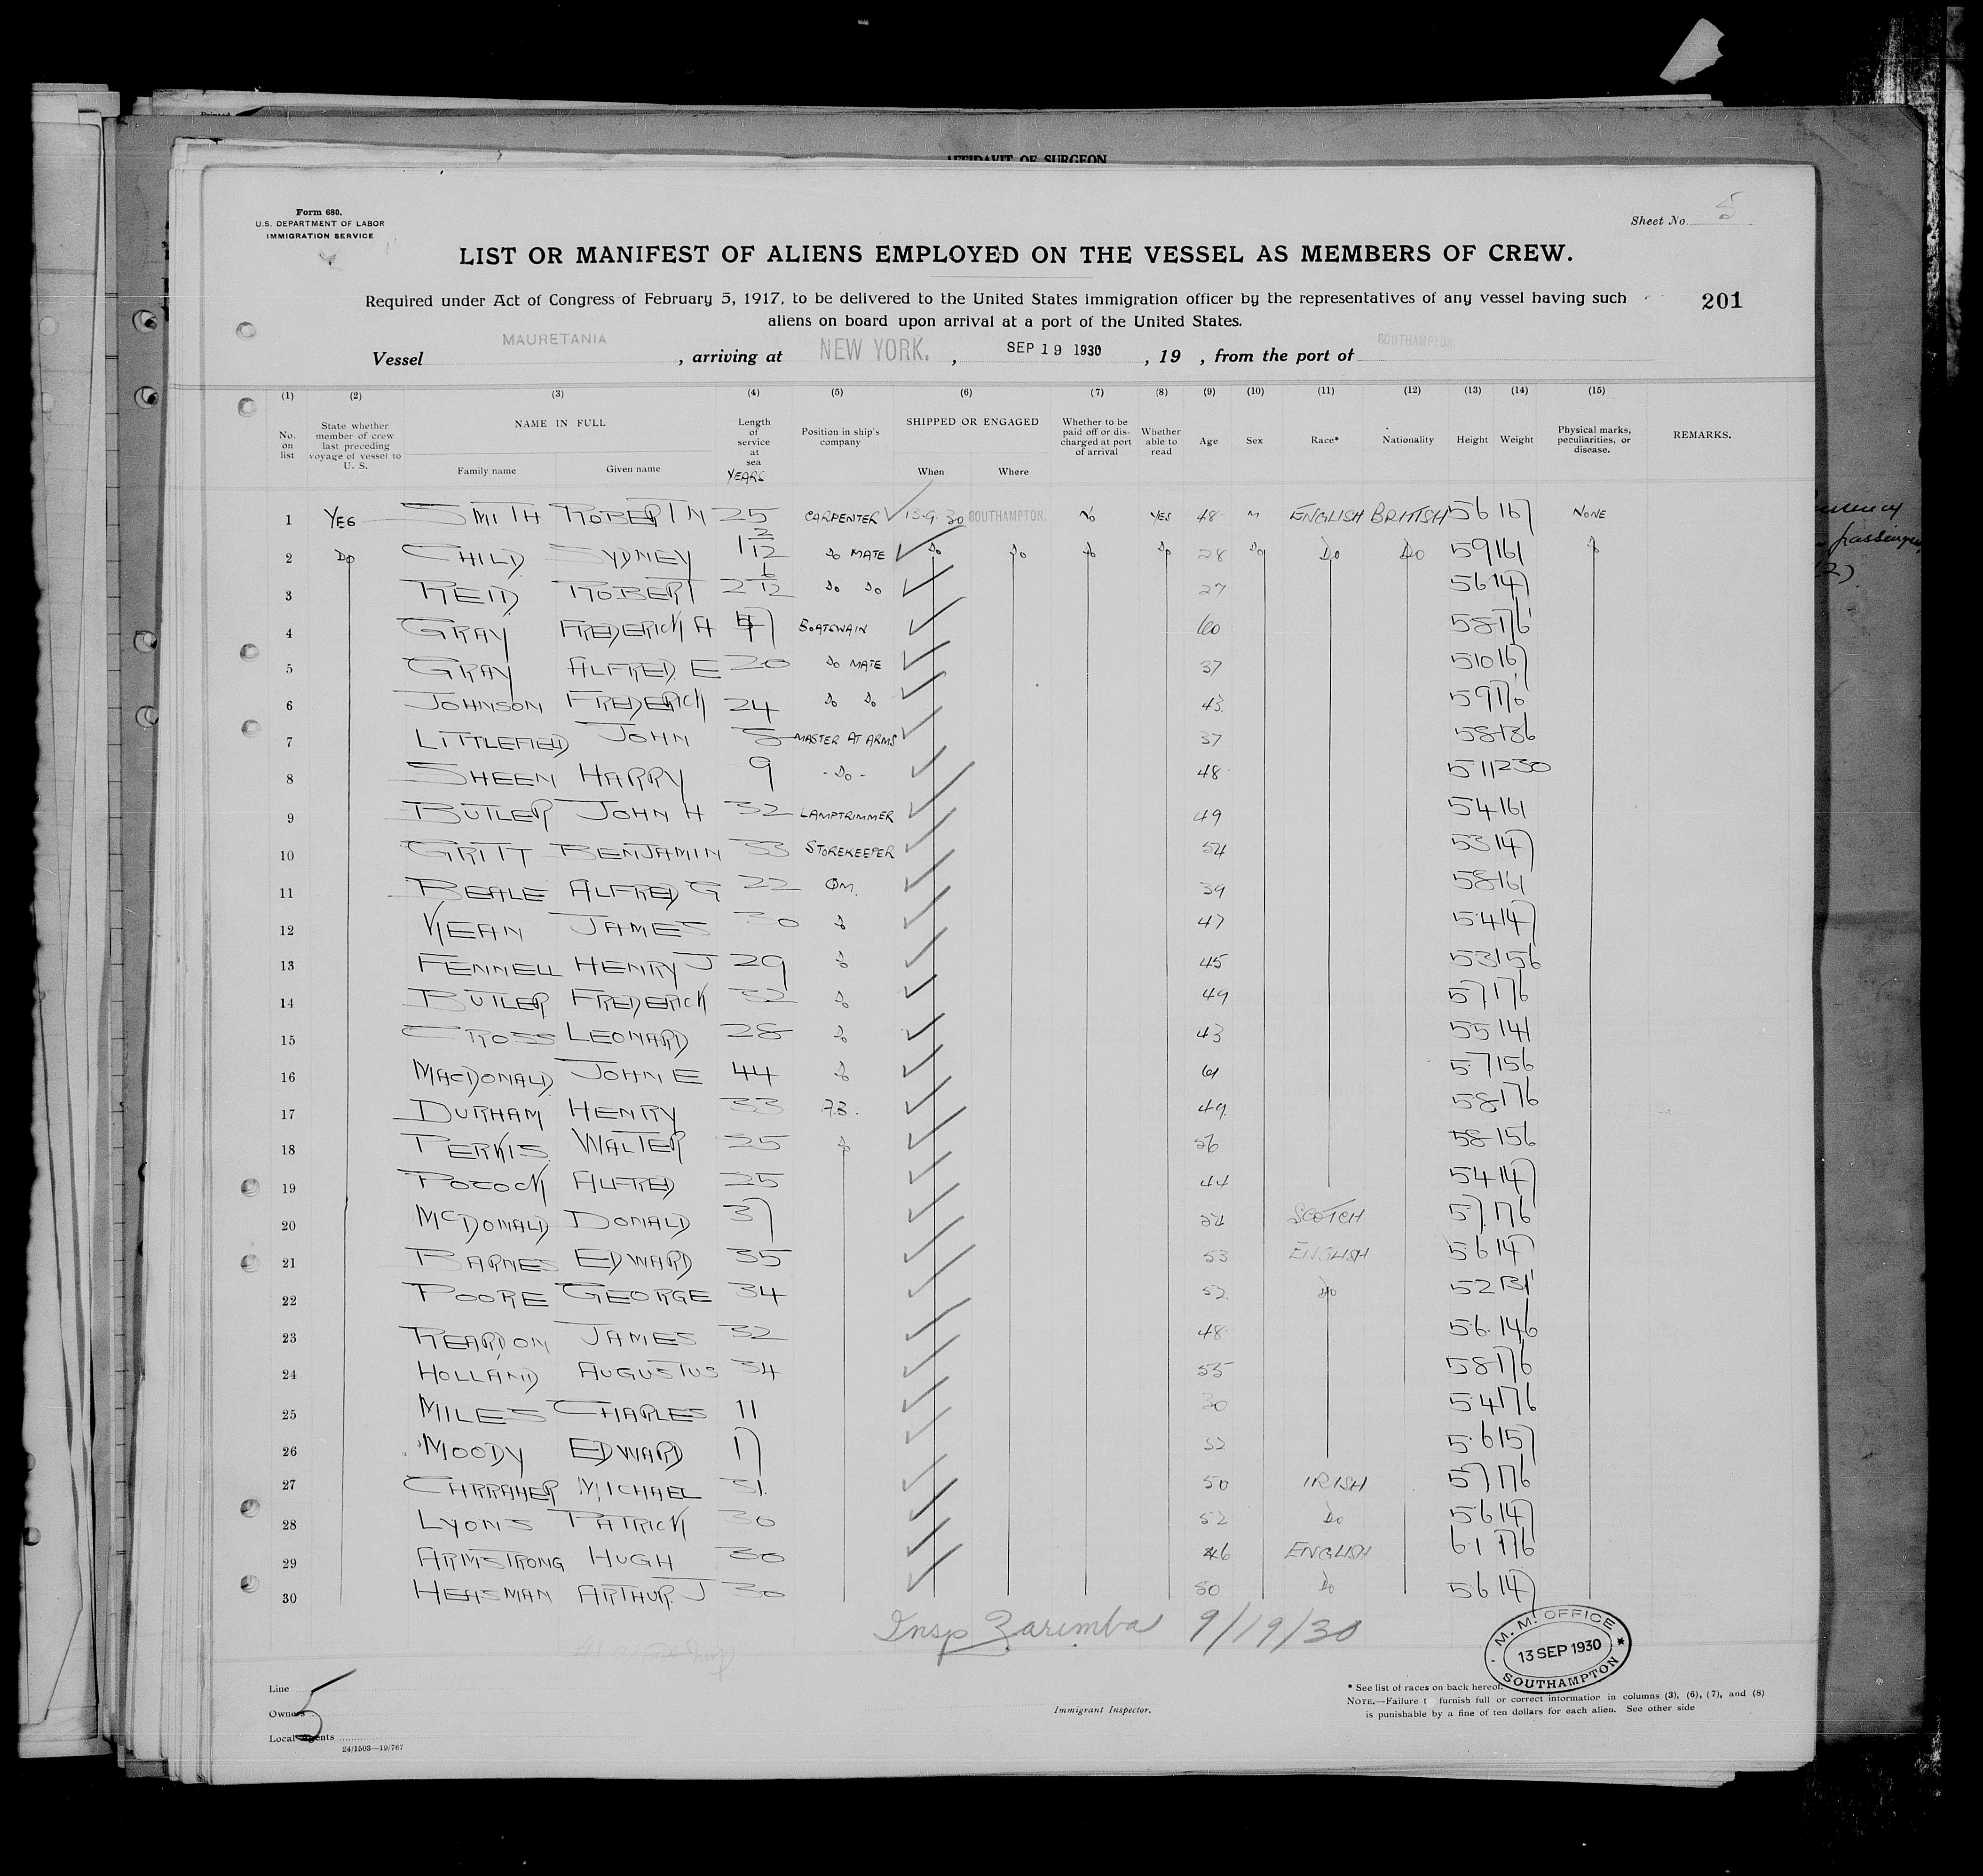 Printed
AFFIDAVIT OF SURGEON
Form 680.
U.S. DEPARTMENT OF LABOR
IMMIGRATION SERVICE
Sheet No. 5
LIST OR MANIFEST OF ALIENS EMPLOYED ON THE VESSEL AS MEMBERS OF CREW.
Required under Act of Congress of February 5, 1917, to be delivered to the United States immigration officer by the representatives of any vessel having such
aliens on board upon arrival at a port of the United States.
201
Vessel MAURETANIA, arriving at NEW YORK., SEP 19 1930, 19 , from the port of SOUTHAMPTON.
(1) (2) (3) (4) (5) (6) (7) (8) (9) (10) (11) (12) (13) (14) (15)
No. on list State whether member of crew last preceding voyage of vessel to U. S. NAME IN FULL Family name Given name Length of service at sea YEARS Position in ship's company SHIPPED OR ENGAGED When Where Whether to be paid off or discharged at port of arrival Whether able to read Age Sex Race* Nationality Height Weight Physical marks, peculiarities, or disease. REMARKS.
1 YES SMITH ROBERT N 25 CARPENTER 13.9.30 SOUTHAMPTON. NO YES 48 M ENGLISH BRITISH 5 6 167 NONE
2 DO CHILD SYDNEY 1 2/12 DO MATE DO DO DO DO 28 DO DO DO 5 9 161 DO
3 REID ROBERT 2 6/12 DO DO 27 5 6 147
4 GRAY FREDERICK A 47 BOATSWAIN 60 5 8 176
5 GRAY ALFRED. E 20 DO MATE 37 5 10 167
6 JOHNSON FREDERICK 24 DO DO 43 5 9 176
7 LITTLEFIELD JOHN 5 MASTER AT ARMS 37 5 8 186
8 SHEEN HARRY 9 -DO- 48 5 11 230
9 BUTLER JOHN H 32 LAMPTRIMMER 49 5 4 161
10 GRITT BENJAMIN 33 STOREKEEPER 54 5 3 147
11 BEALE ALFRED G 22 QM. 39 5 8 161
12 KEAN JAMES 30 DO 47 5 4 147
13 FENNELL HENRY J 29 DO 45 5 3 156
14 BUTLER FREDERICK 32 DO 49 5 7 176
15 CROSS LEONARD 28 DO 43 5 5 141
16 MACDONALD JOHN E 44 DO 61 5 7 156
17 DURHAM HENRY 33 A.B. 49 5 8 176
18 PERKIS WALTER 25 DO 56 5 8 156
19 POCOCK ALFRED 25 44 5 4 147
20 MCDONALD DONALD 37 54 SCOTCH 5 7 176
21 BARNES EDWARD 35 53 ENGLISH 5 6 147
22 POORE GEORGE 34 52 DO 5 2 131
23 REARDON JAMES 32 48 5 6 146
24 HOLLAND AUGUSTUS 34 55 5 8 176
25 MILES CHARLES 11 30 5 4 176
26 MOODY EDWARD 17 32 5 6 157
27 CARRAHER MICHAEL 31 50 IRISH 5 7 176
28 LYONS PATRICK 30 52 DO 5 6 147
29 ARMSTRONG HUGH 30 46 ENGLISH 6 1 176
30 HEASMAN ARTHUR. J 30 50 DO 5 6 147
Insp Zaremba 9/19/30
M. M. OFFICE
13 SEP 1930
SOUTHAMPTON
Line
Owners
Local agents
5
24/1503—19/767
Immigrant Inspector.
* See list of races on back hereof.
NOTE.—Failure t furnish full or correct information in columns (3), (6), (7), and (8)
is punishable by a fine of ten dollars for each alien. See other side
passenger